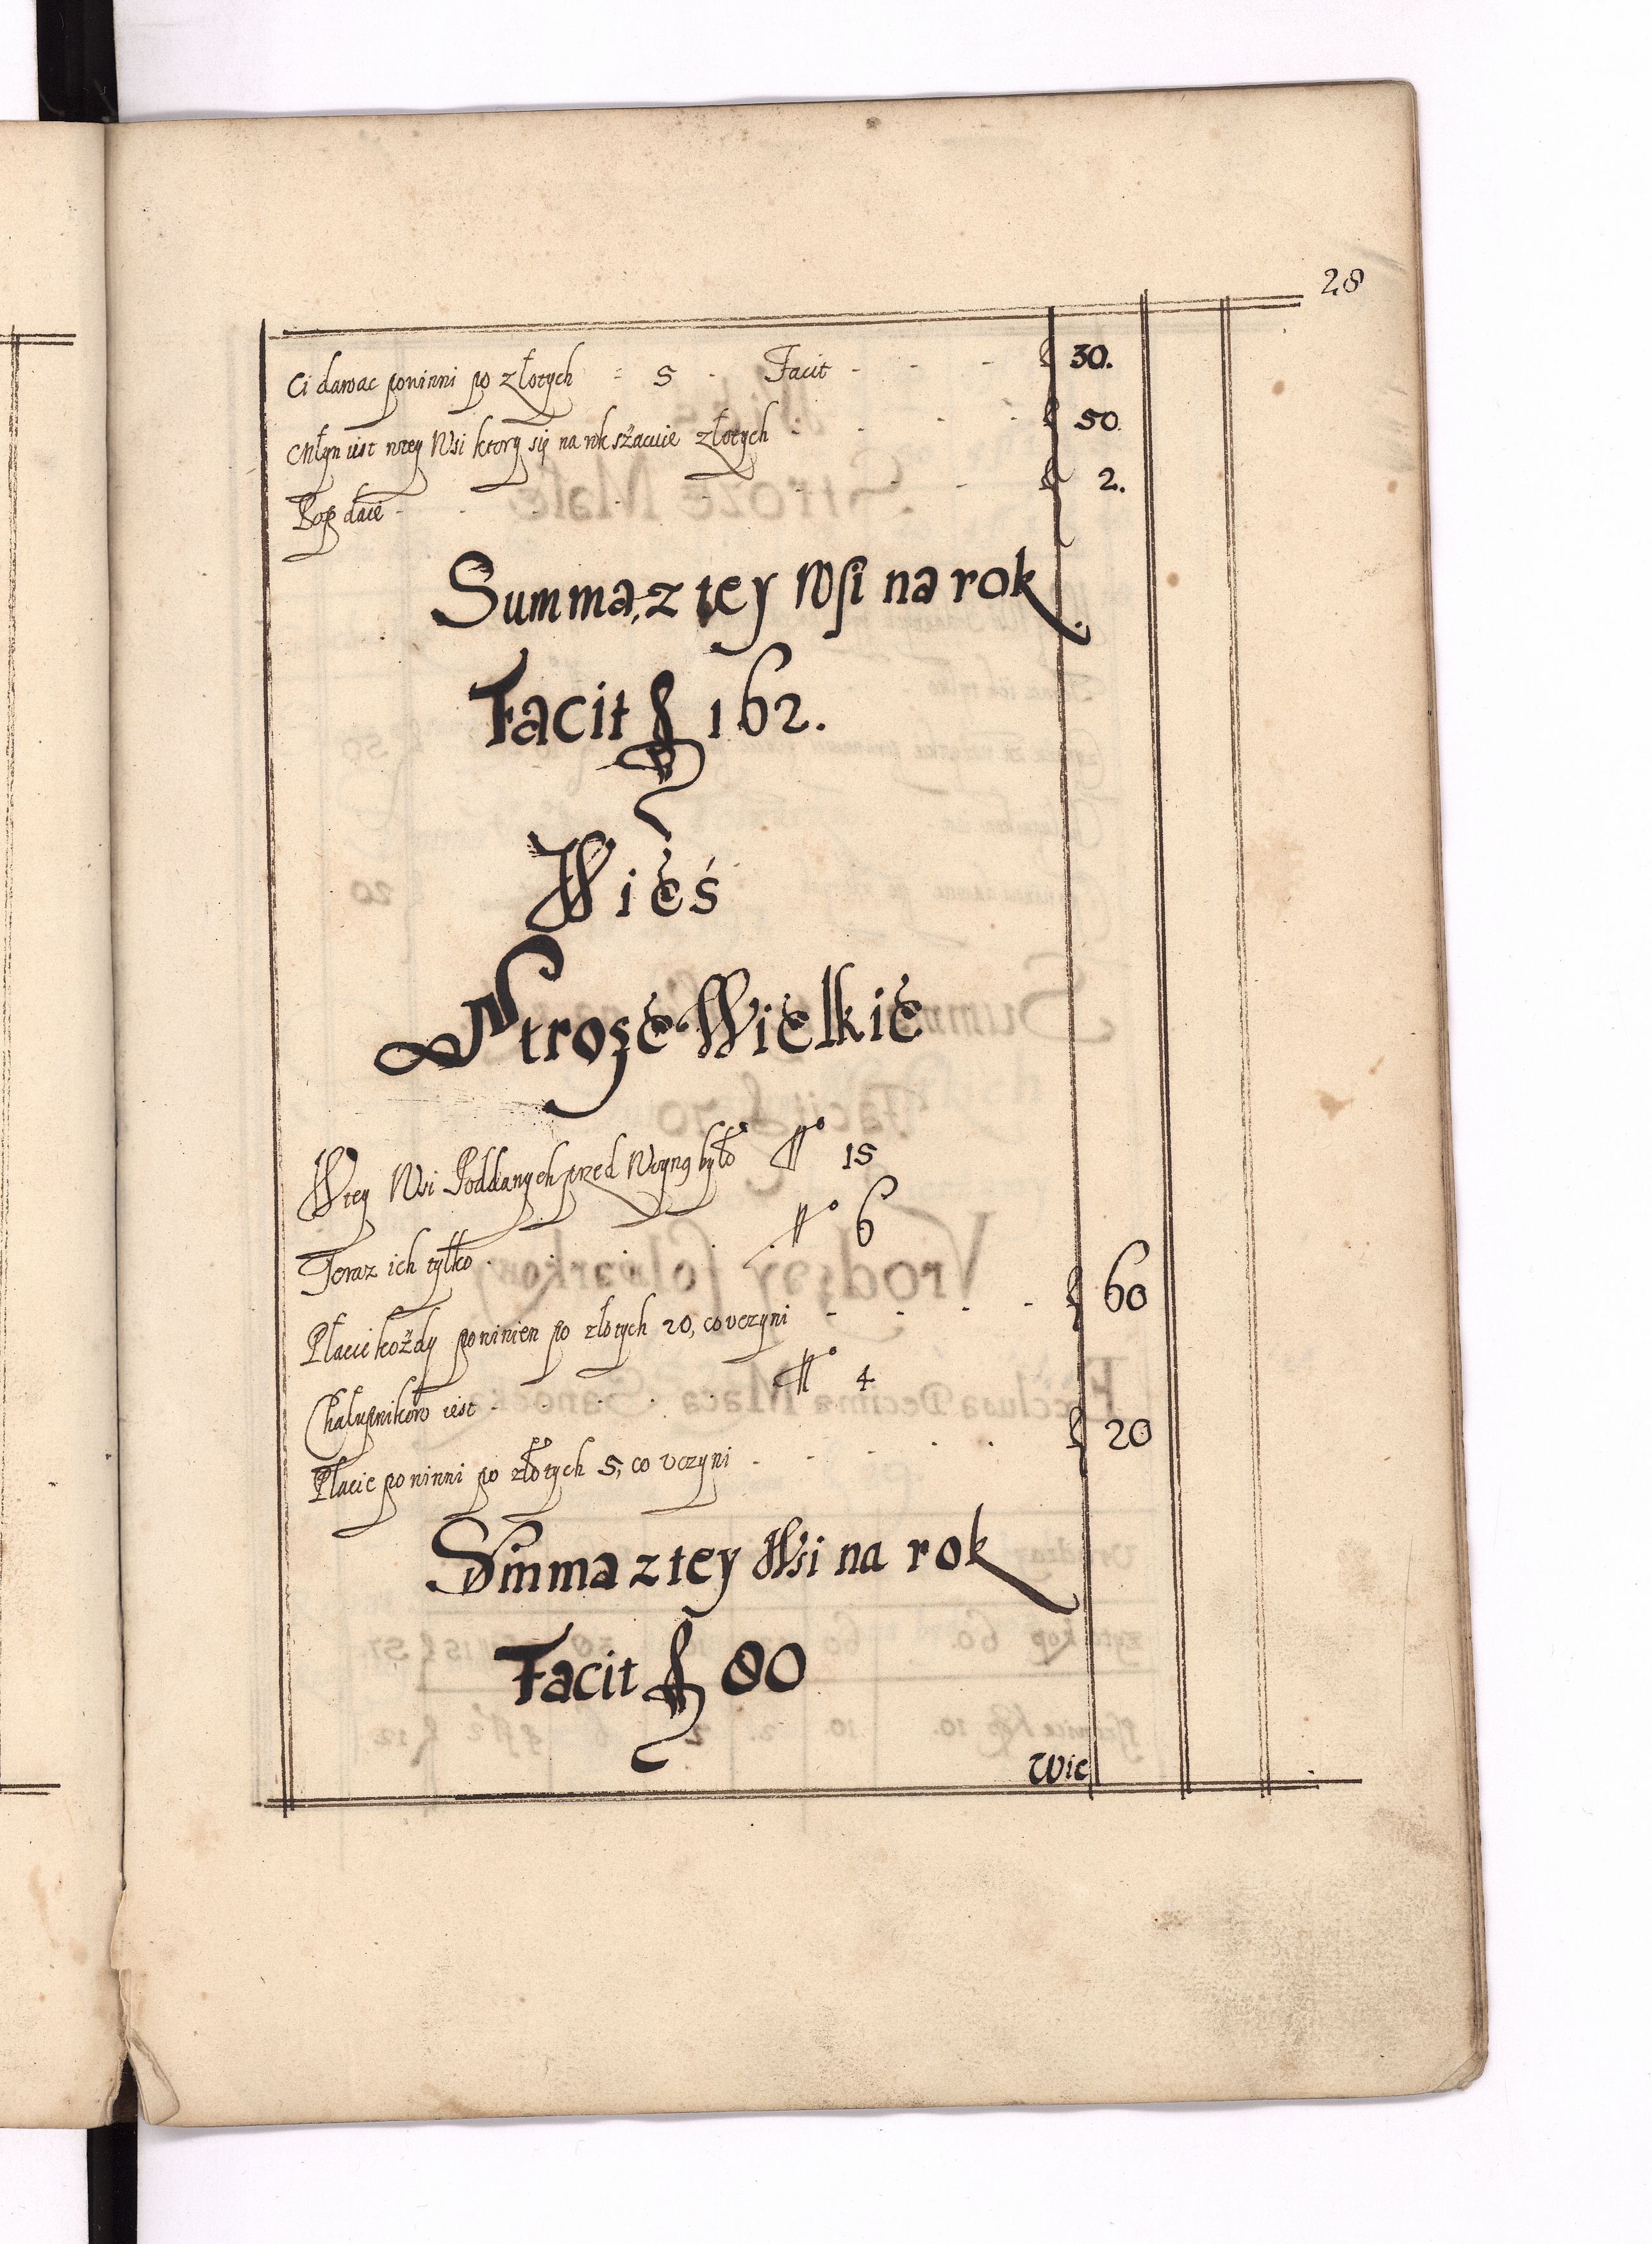 28
Ci dawac powinni po złotych = 5 . Facit - - - f 30.
Młyn iest wtey Wsi ktory się na rok szacuie złotych - - - f 50.
Pop daie - - - f 2.
Summa, z tey Wsi na rok
Facit f 162.
Wieś
Stroże Wielkie
Wtey Wsi Poddanych przed Woyną było No 15
Teraz ich tylko No 6
Płacić kożdy powinien po złotych 20, co vczyni - - - f 60
Chałupnikow iest - - - No 4
Płacic powinni po złotych 5, co vczyni - - - f 20
Summa z tey Wsi na rok
Facit f 80
Wie